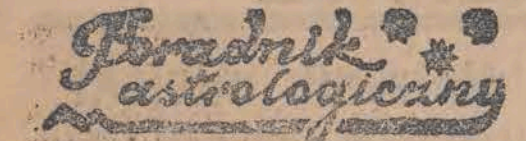 Poradnik
astrologiczny